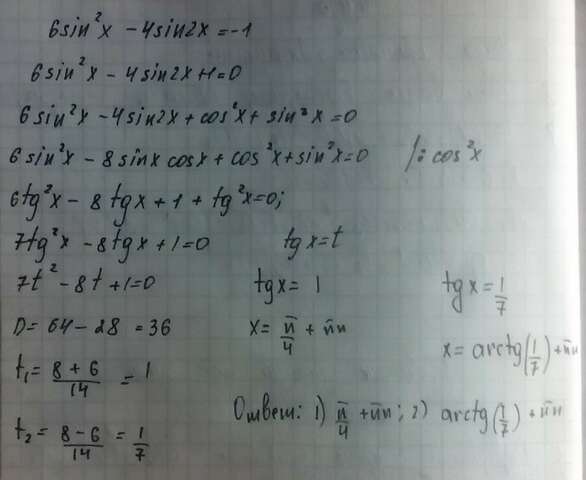 6sin²x - 4sin2x = -1
6sin²x - 4sin2x + 1 = 0
6sin²x - 4sin2x + cos²x + sin²x = 0
6sin²x - 8sinx cosx + cos²x + sin²x = 0 /: cos²x
6tg²x - 8tgx + 1 + tg²x = 0;
7tg²x - 8tgx + 1 = 0 tgx = t
7t² - 8t + 1 = 0 tgx = 1 tgx = 1/7
D = 64 - 28 = 36 x = π/4 + πn x = arctg(1/7) + πn
t₁ = (8 + 6)/14 = 1
Ответ: 1) π/4 + πn; 2) arctg(1/7) + πn
t₂ = (8 - 6)/14 = 1/7